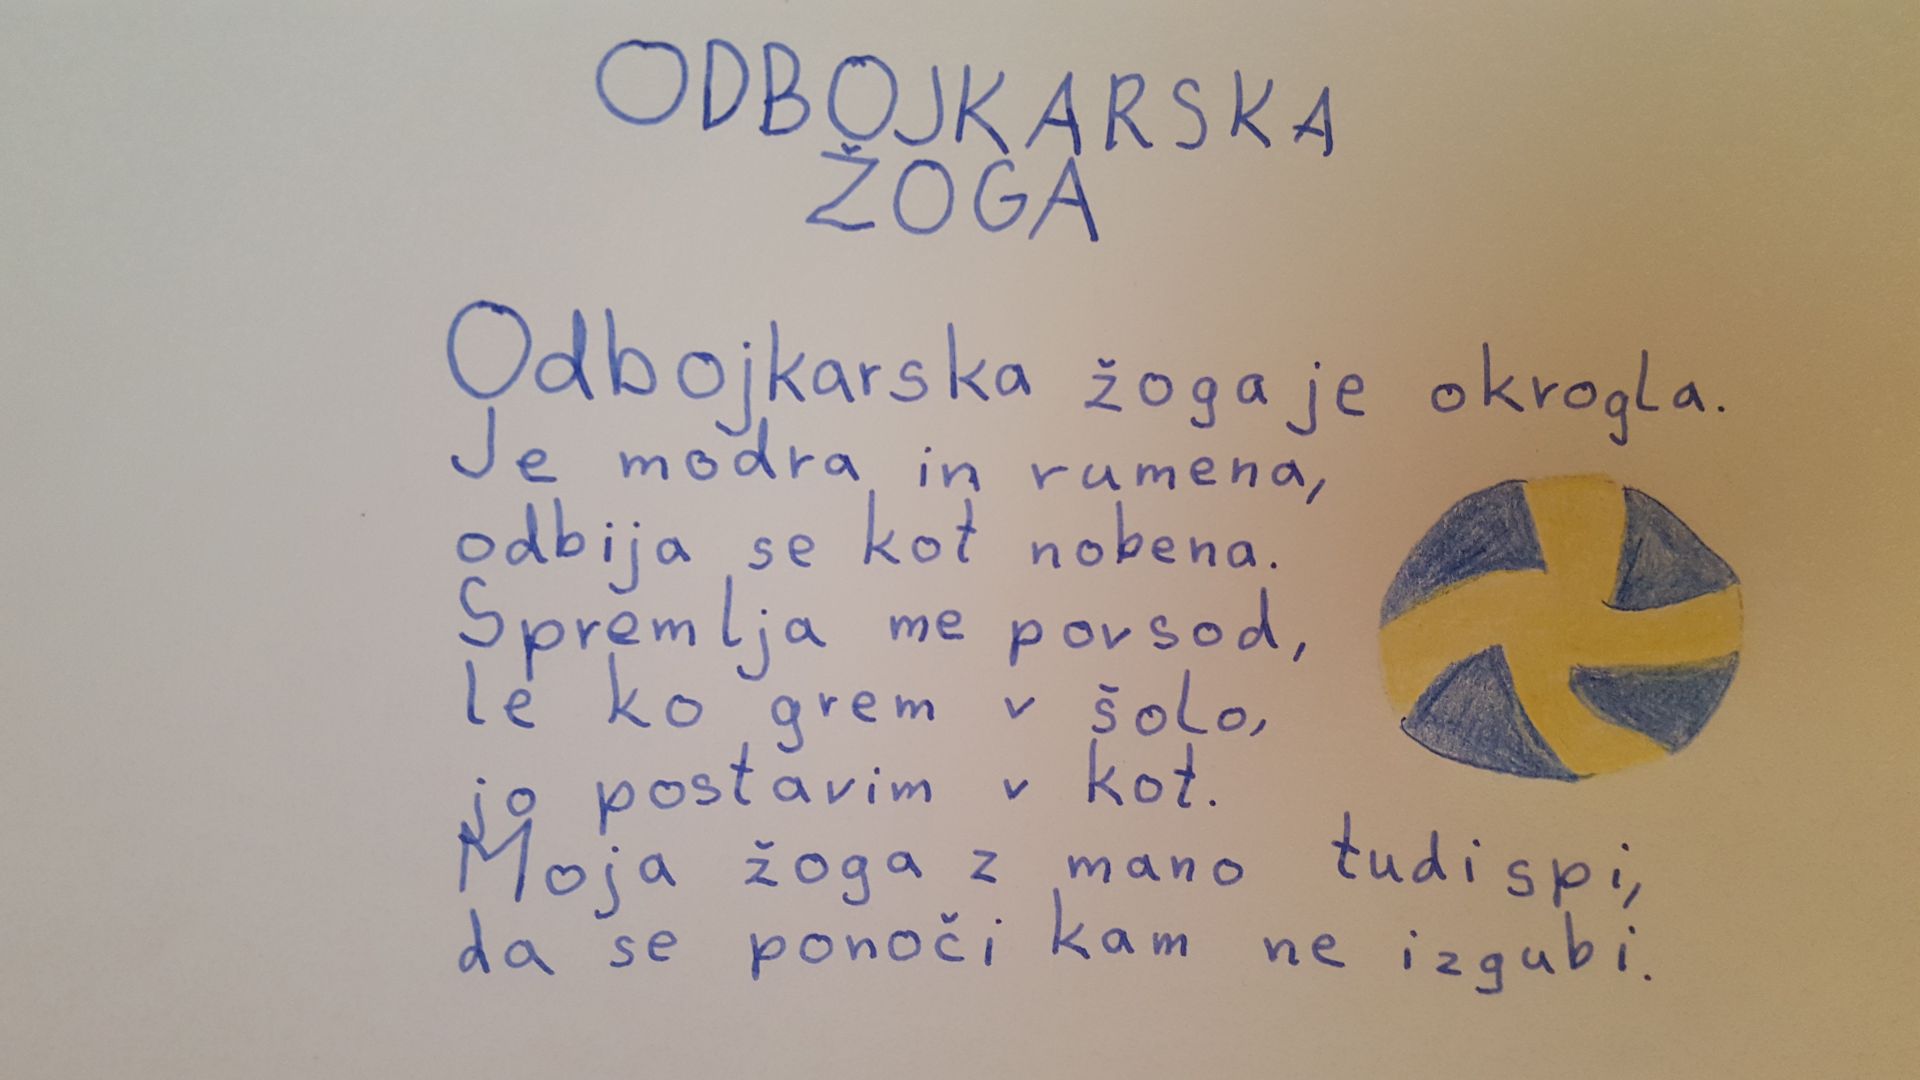 ODBOJKARSKA
ŽOGA
Odbojkarska žoga je okrogla.
Je modra in rumena,
odbija se kot nobena.
Spremlja me povsod,
le ko grem v šolo,
jo postavim v kot.
Moja žoga z mano tudi spi,
da se ponoči kam ne izgubi.